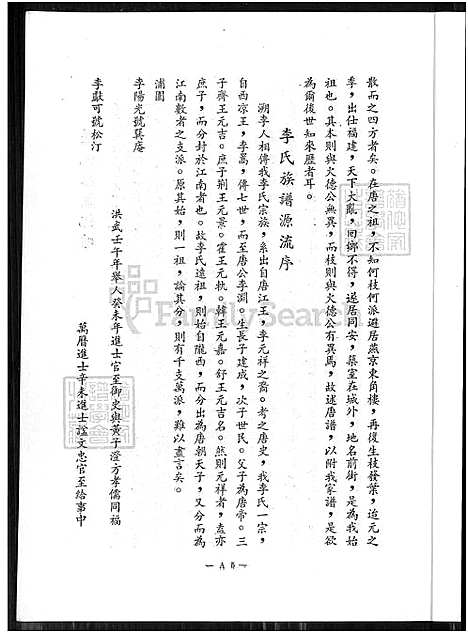 散而之四方者矣。在唐之祖，不知何枝何派避居燕京東角樓，再復生枝發葉，迨元之
季，出仕福建，天下大亂，回鄉不得，遂居同安，築室在城外，地名前街，是為我始
祖也。其本則與火德公無異，而枝則與火德公有異焉，故述唐譜，以附我家譜，是欲
為爾後世知來歷者耳。
李氏族譜源流序
溯李人相傳我李氏宗族，系出自唐江王，李元祥之裔。考之唐史，我李氏一宗，
自西涼王，李暠，傳七世，而至唐公李淵。生長子建成，次子世民。父子為唐帝。三
子齊王元吉。庶子荆王元景。霍王元軌。韓王元嘉。舒王元吉名。然則元祥者，盖亦
庶子，而分封於江南者也。故李氏遠祖，則始自隴西，而分出為唐朝天子，又分而為
江南數者之支派。原其始，則一祖，論其分，則有千支萬派，難以盡言矣。
浦園
李陽光號巽庵
洪武壬午年舉人癸未年進士官至御史與黃子澄方孝儒同福
李獻可號松汀
萬曆進士辛未進士謚文忠官至給事中
—A5—
FamilySearch